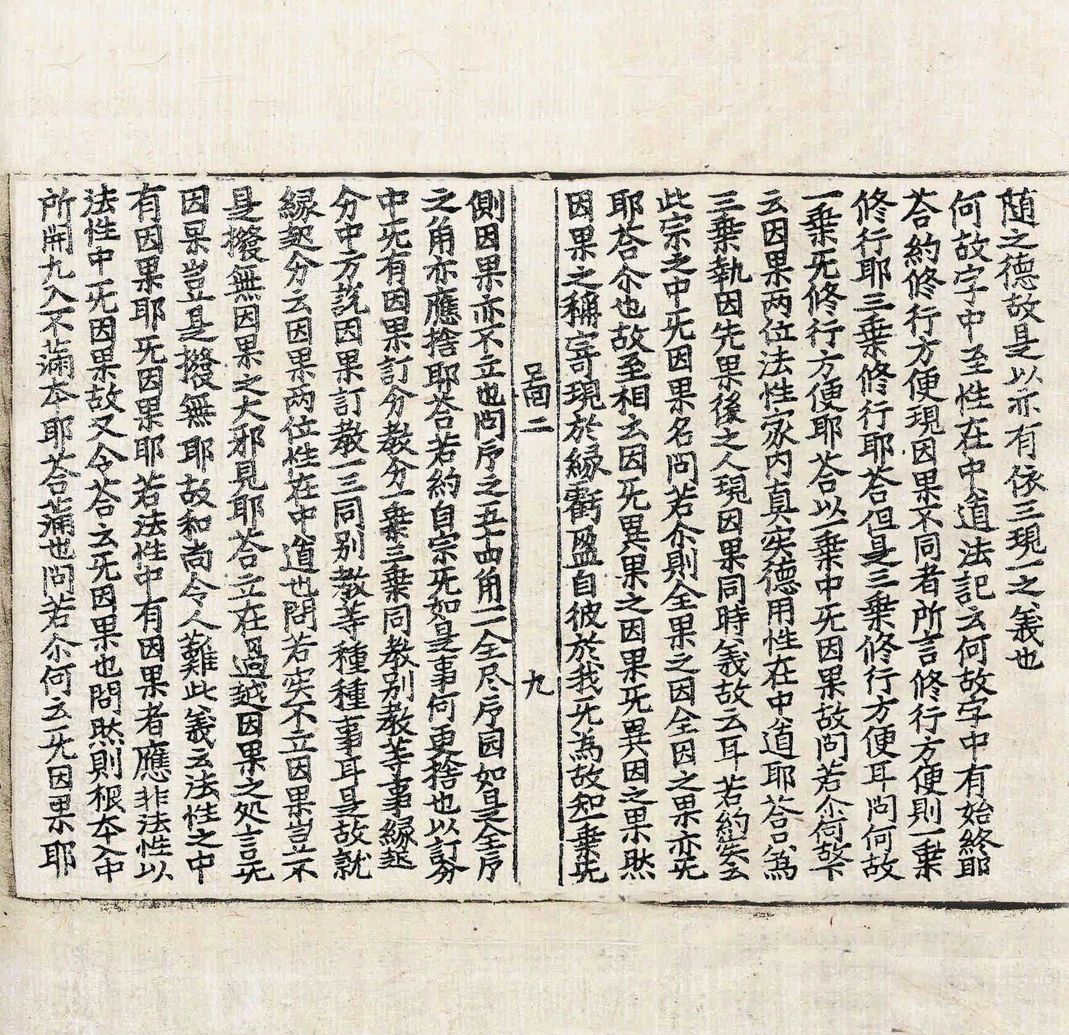 随之德故是以亦有依三現一之義也
何故字中至性在中道法記云何故字中有始終耶
荅約修行方便現因果不同者所言修行方便則一乗
修行耶三乗修行耶荅但是三乗修行方便耳問何故
一乗旡修行方便耶荅以一乗中旡因果故問若尒何故下
云因果两位法性家内真实德用性在中道耶荅曰為
三乗執因先果後之人現因果同時義故云耳若約实云
此宗之中旡因果名問若尒則全果之因全因之果亦旡
耶荅尒也故至相云因旡異果之因果旡異因之果然
因果之稱寄現於縁虧盈自彼於我旡為故知一乗旡
圖二
九
側因果亦不立也問序之五十四角一一全尽序园如是全序
之角亦應捨耶荅若約自宗旡如是事何更捨也以訂分
中旡有因果訂分教分一乗三乗同教別教䒭事縁起
分中方說因果訂教一三同别教䒭種種事耳是故就
縁起分云因果两位性在中道也問若实不立因果豈不
是撥無因果之大邪見耶荅立在過越因果之処言旡
因果豈是撥無耶故和尚令人難此義云法性之中
有因果耶旡因果耶若法性中有因果者應非法性以
法性中旡因果故又令荅云旡因果也問然則根本入中
所開九入不滿本耶荅滿也問若尒何云旡因果耶